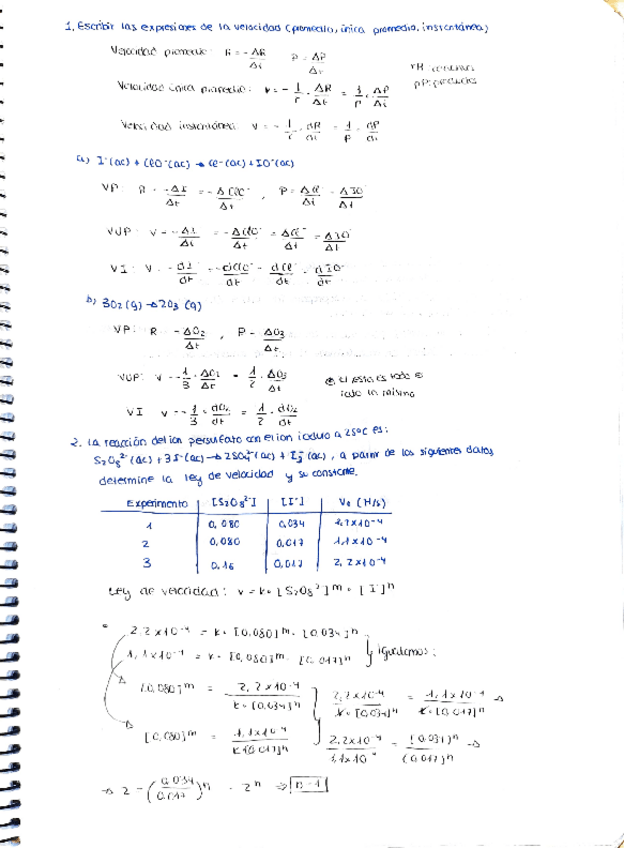 1. Escribir las expresiones de la velocidad (promedio, única promedio, instantánea)
Velocidad promedio: R = - ΔR/Δt   P = ΔP/Δt
Velocidad única promedio: v = - 1/r · ΔR/Δt = 1/P · ΔP/Δt
pP: producto
Velocidad instantánea: v = - 1/r · dR/dt = 1/P · dP/dt
a) I⁻(ac) + ClO⁻(ac) → Cl⁻(ac) + IO⁻(ac)
VP: R = -ΔI⁻/Δt = -ΔClO⁻/Δt , P = ΔCl⁻/Δt = ΔIO⁻/Δt
VUP: v = -ΔI⁻/Δt = -ΔClO⁻/Δt = ΔCl⁻/Δt = ΔIO⁻/Δt
VI: v = -dI⁻/dt = -dClO⁻/dt = dCl⁻/dt = dIO⁻/dt
b) 3O₂(g) → 2O₃(g)
VP: R = -ΔO₂/Δt , P = ΔO₃/Δt
VUP: v = -1/3 · ΔO₂/Δt = 1/2 · ΔO₃/Δt
VI v = -1/3 · dO₂/dt = 1/2 · dO₂/dt
2. La reacción del ion persulfato con el ion ioduro a 25ºC es:
S₂O₈²⁻(ac) + 3I⁻(ac) → 2SO₄²⁻(ac) + I₃⁻(ac), a partir de los siguientes datos
determine la ley de velocidad y su constante.
Experimento [S₂O₈²⁻] [I⁻] V₀ (M/s)
1 0,080 0,034 2,2x10⁻⁴
2 0,080 0,017 1,1x10⁻⁴
3 0,16 0,017 2,2x10⁻⁴
Ley de velocidad: v = k · [S₂O₈²⁻]ᵐ · [I⁻]ⁿ
2,2x10⁻⁴ = k · [0,080]ᵐ · [0,034]ⁿ
1,1x10⁻⁴ = k · [0,080]ᵐ · [0,017]ⁿ } igualamos:
[0,080]ᵐ = 2,2x10⁻⁴/k·[0,034]ⁿ } 2,2x10⁻⁴/k·[0,034]ⁿ = 1,1x10⁻⁴/k·[0,017]ⁿ →
[0,080]ᵐ = 1,1x10⁻⁴/k·[0,017]ⁿ } 2,2x10⁻⁴/1,1x10⁻⁴ = (0,034)ⁿ/(0,017)ⁿ →
→ 2 = (0,034/0,017)ⁿ = 2ⁿ ⇒ n=1